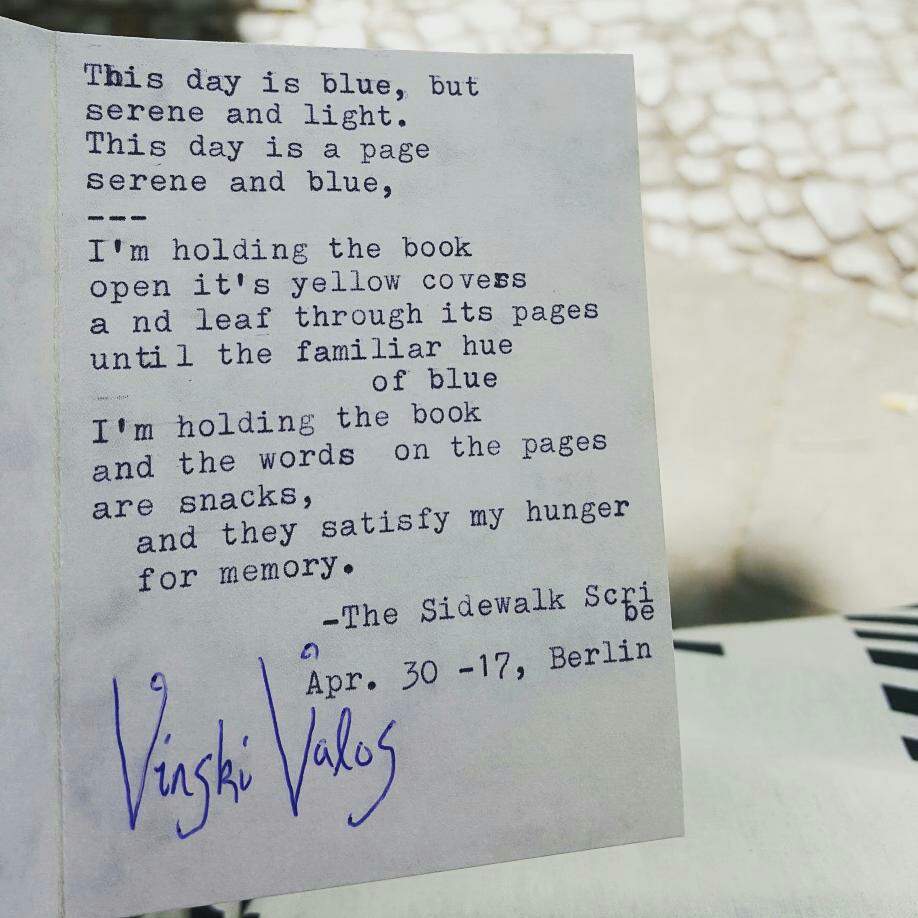 This day is blue, but
serene and light.
This day is a page
serene and blue,
---
I'm holding the book
open it's yellow covers
a nd leaf through its pages
until the familiar hue
of blue
I'm holding the book
and the words on the pages
are snacks,
and they satisfy my hunger
for memory.
-The Sidewalk Scri
be
Apr. 30 -17, Berlin
Vinski Valos